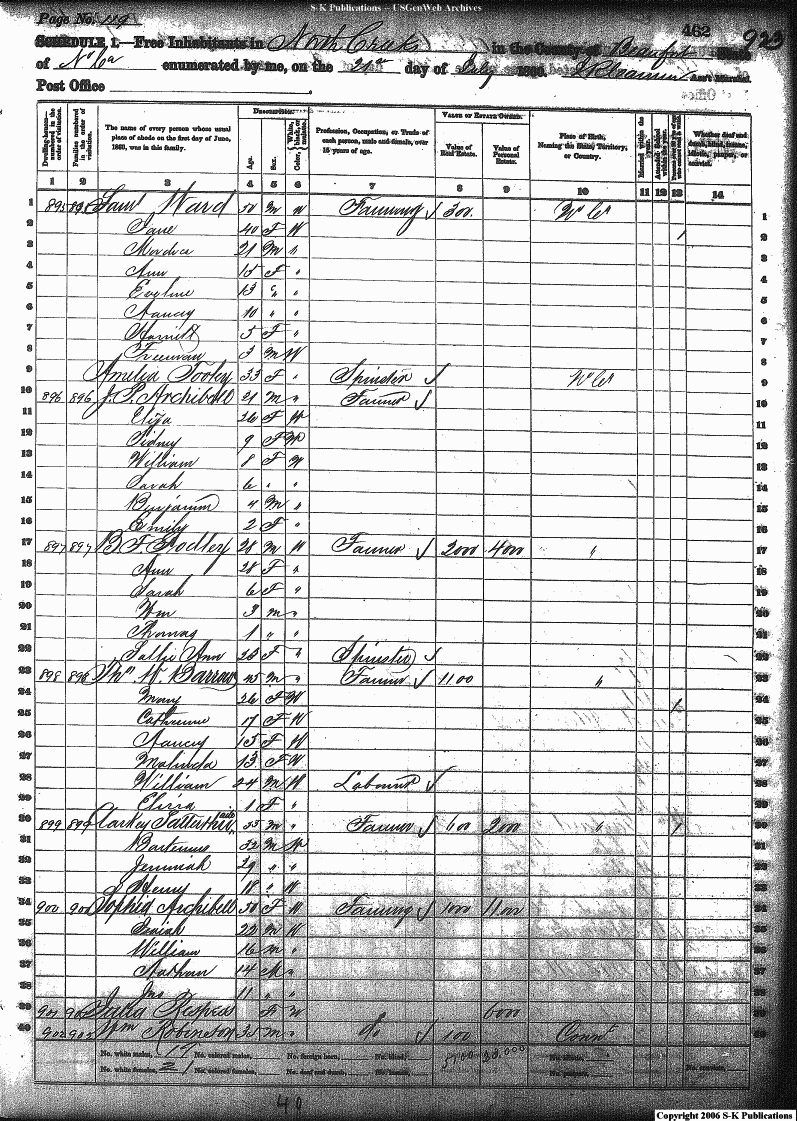 S-K Publications -- USGenWeb Archives
Page No. 119
462
923
SCHEDULE 1.—Free Inhabitants in North Creek in the County of Beaufort State
of No Ca enumerated by me, on the 21st day of July 1860. Ass't Marshal.
Post Office
DESCRIPTION. VALUE OF ESTATE OWNED.
Dwelling-houses—numbered in the order of visitation. Families numbered in the order of visitation. The name of every person whose usual place of abode on the first day of June, 1860, was in this family. Age. Sex. Color, White, black, or mulatto. Profession, Occupation, or Trade of each person, male and female, over 15 years of age. Value of Real Estate. Value of Personal Estate. Place of Birth, Naming the State, Territory, or Country. Married within the year. Attended School within the year. Whether deaf and dumb, blind, insane, idiotic, pauper, or convict.
1 2 3 4 5 6 7 8 9 10 11 12 13 14
1 895 895 Saml Ward 50 M W Farming 300 N Ca 1
2 Jane 40 F W 1 2
3 Mordica 21 M " 3
4 Ann 15 F " 4
5 Eveline 13 " " 5
6 Nancy 10 " " 6
7 Harriett 5 F " 7
8 Freeman 3 M W 8
9 Amelia Tooley 33 F " Spinster N Ca 9
10 896 896 J. P. Archibell 21 M " Farmer 10
11 Eliza 26 F W 11
12 Sidney 9 F W 12
13 William 8 F W 13
14 Sarah 6 " " 14
15 Benjamin 4 M " 15
16 Emily 2 F " 16
17 897 897 B F 28 M W Farmer 2000 4000 " 17
18 Ann 28 F " 18
19 Sarah 6 F " 19
20 Wm 3 M " 20
21 Thomas 1 " " 21
22 Sallie Ann 23 F " Spinster 22
23 898 898 Thos W. Barrow 45 M " Farmer 1100 " 23
24 Mary 26 F W 1 24
25 Catherine 17 F W 25
26 Nancy 15 F W 26
27 Malinda 13 F W 27
28 William 24 M W Labourer 28
29 1 F " 29
30 899 899 Satterthwaite 55 M " Farmer 600 2000 " 1 30
31 32 M W 31
32 Jeremiah 29 " " 32
33 Henry 18 " W 33
34 900 900 Sophia Archibell 50 F W Farming 1000 1100 34
35 Isaiah 22 M W 35
36 William 16 M " 36
37 Nathan 14 M " 37
38 Jas 11 " " 38
39 901 F W 6000 39
40 902 902 Wm Robinston 35 M " do 100 Conn 40
No. white males, 19 No. colored males, No. foreign born, No. blind,
No. white females, 21 No. colored females, No. deaf and dumb, No. insane,
No. idiotic, No. paupers, No. convicts,
40
Copyright 2006 S-K Publications